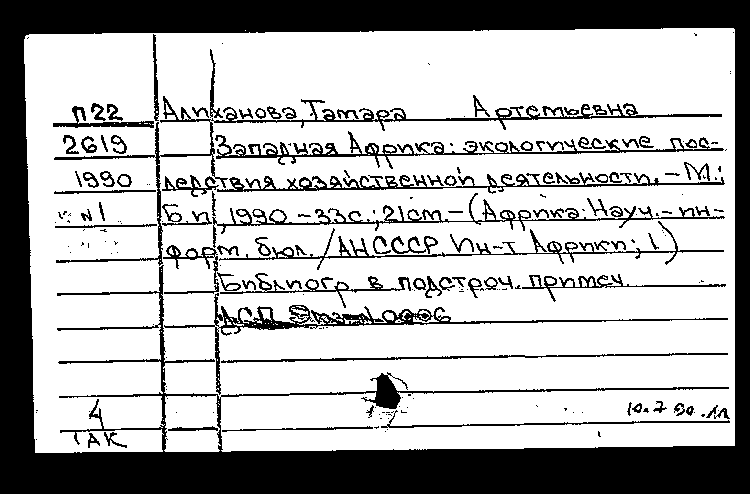 П22 Алиханова, Тамара Артемьевна
2619 Западная Африка: экологические пос-
1990 ледствия хозяйственной деятельности. – М.:
N1 Б.и., 1990. – 33с.; 21см. – (Африка: Науч.-ин-
форм. бюл. / АН СССР. Ин-т Африки; 1)
Библиогр. в подстроч. примеч.
ДСП Экз. N 0006
4
ТАК